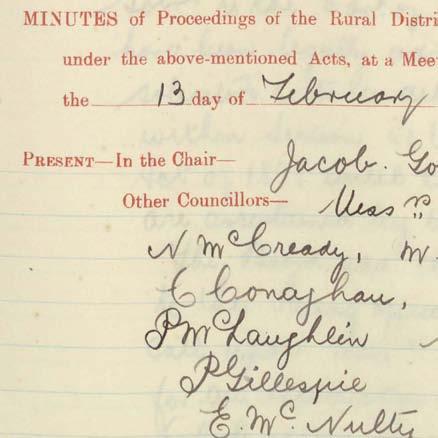 MINUTES of Proceedings of the Rural Distri
under the above-mentioned Acts, at a Mee
the 13 day of February
PRESENT—In the Chair— Jacob. Go
Other Councillors— Messrs
N McCready, M
C Conaghan,
P McLaughlin
P Gillespie
E. Mc. Nulty